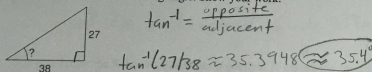 tan⁻¹ = opposite / adjacent
27
?
38
tan⁻¹(27/38 ≈ 35.3948 ≈ 35.4°